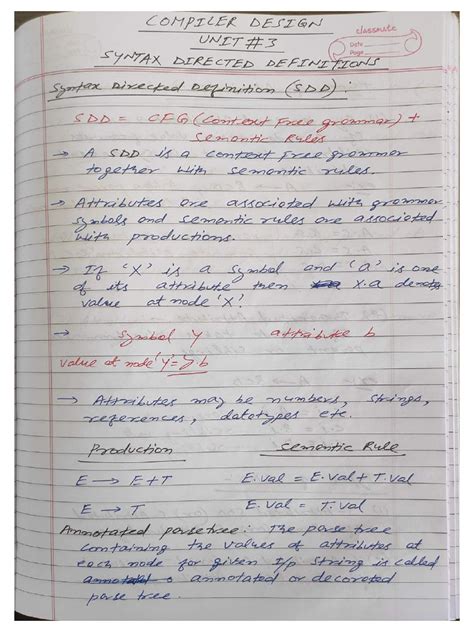 COMPILER DESIGN
UNIT #3
classmate
Date
Page
SYNTAX DIRECTED DEFINITIONS
Syntax Directed Definition (SDD) :
SDD = CFG (Context Free grammar) +
Semantic Rules
→ A SDD is a context free grammar
together with semantic rules.
→ Attributes are associated with grammar
symbols and semantic rules are associated
with productions.
→ If 'X' is a symbol and 'a' is one
of its attribute then X.a denotes
value at node 'X'.
→ Symbol Y attribute b
value at node 'Y' = Y.b
→ Attributes may be numbers, strings,
references, datatypes etc.
Production Semantic Rule
E → E+T E.val = E.val + T.val
E → T E.val = T.val
Annotated parse tree : The parse tree
containing the values of attributes at
each node for given I/p string is called
a annotated or decorated
parse tree.